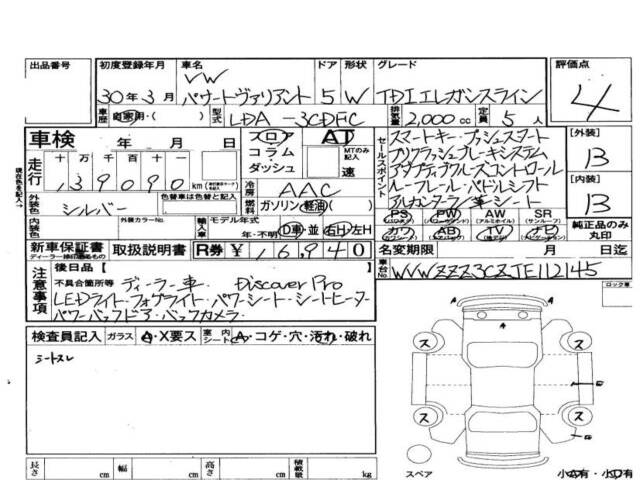 出品番号 初度登録年月 車名 ドア 形状 グレード 評価点
VW
30年3月 パサートヴァリアント 5 W TDIエレガンスライン 4
車歴 自家用・( ) 型式 LDA-3CDFC 排気量 2,000cc 定員 5人
車検 年 月 日 フロア AT セールスポイント スマートキー・プッシュスタート [外装]
コラム MTのみ記入 プリクラッシュブレーキシステム B
走行 十万千百十一 ダッシュ 速 アダプティブクルーズコントロール
139090 km 冷房 AAC ルーフレール・パドルシフト [内装]
外装色 シルバー 色替車は色替と記入 燃料 ガソリン・軽油( ) アルカンターラ/革シート B
PS PW AW SR
(パワステ) (パワーウインド) (アルミホイル) (サンルーフ)
内装色 外装カラーNo. 輸入車 モデル年式 年・不明 D車・並 右H・左H カワ AB TV ナビ 純正品のみ丸印
新車保証書 取扱説明書 R券 ¥16,940 名変期限 月 日迄
ディーラー捺印あるもの
注意事項 後日品 [ ] 車台No. WVWZZZ3CZJE112145
不具合箇所等 ディーラー車 Discover Pro ロック車
LEDライト・フォグライト・パワーシート・シートヒーター
パワーバックドア・バックカメラ
検査員記入 ガラス A・X要ス 室内シート A・コゲ・穴・汚れ・破れ
シートスレ
A A
A
ス ス
ス ス
長さ cm 幅 cm 高さ cm 積載量 kg スペア